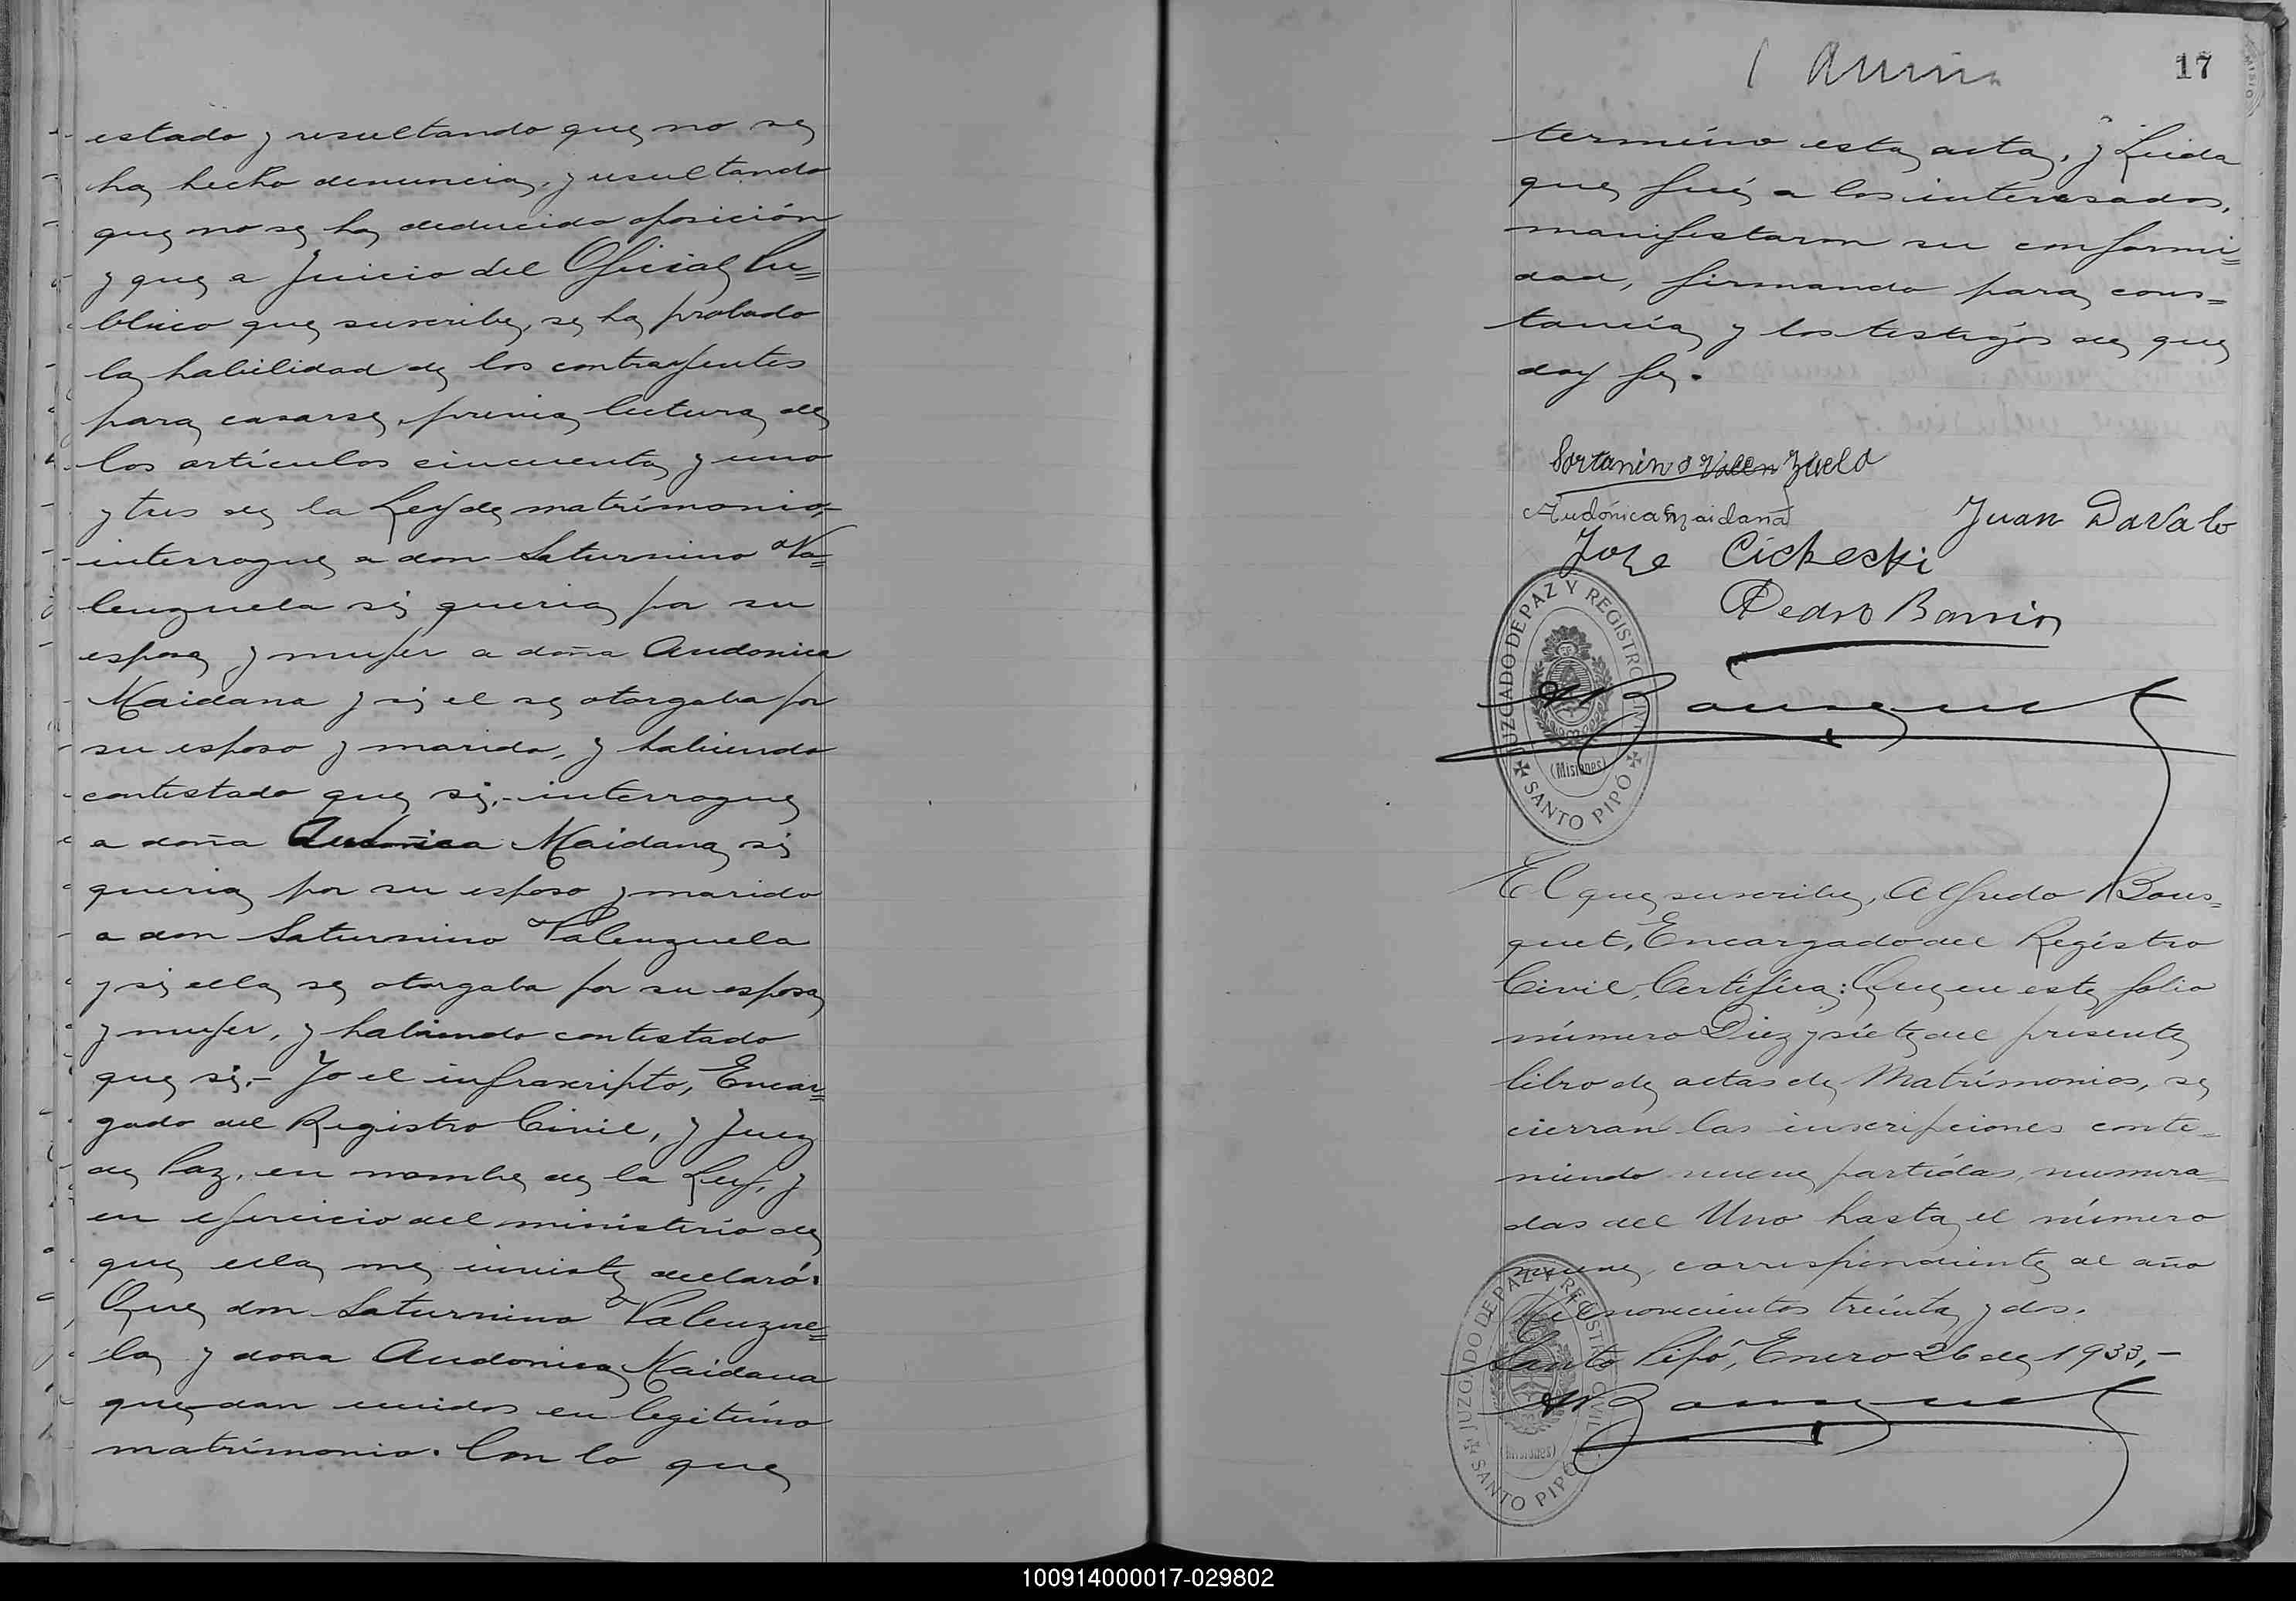 estado y resultando que no se
ha hecho denuncia, y resultando
que no se ha deducido oposición
y que a Juicio del Oficial Pu=
blico que suscribe, se ha probado
la habilidad de los contrayentes
para casarse, previa lectura de
los artículos cincuenta y uno
y tres de la Ley de matrimonio,-
interrogue a don Saturnino Va=
lenzuela si queria por su
esposa y mujer a doña Audonica
Maidana y si el se otorgaba por
su esposo y marido, y habiendo
contestado que si,- interrogue
a doña Audonica Maidana si
queria por su esposo y marido
a don Saturnino Valenzuela
y si ella se otorgaba por su esposa
y mujer, y habiendo contestado
que si,- Yo el infrascripto, Encar=
gado del Registro Civil, y Juez
de Paz, en nombre de la Ley, y
en ejercicio del ministerio de
que ella me inviste declaró:
Que don Saturnino Valenzue=
la y doña Audonica Maidana
quedan unidos en legitimo
matrimonio. Con lo que
17
termino esta acta, y Leida
que fué a los interesados,
manifestaron su conformi=
dad, firmando para cons=
tancia y los testigos de que
doy fe.
Sortanino Valenzuela
Audónica Maidana
Juan Davalo
Joze Cickeski
Pedro Barrios
JUZGADO DE PAZ Y REGISTRO CIVIL
(Misiones)
SANTO PIPÓ
A Bousquet
El que suscribe, Alfredo Bous=
quet, Encargado del Registro
Civil, Certifica: Que en este folio
número Diez y siete del presente
libro de actas de Matrimonios, se
cierran las inscripciones conte=
niendo nueve partidas, numera=
das del Uno hasta el número
nueve, correspondiente al año
Mil novecientos treinta y dos.
Santo Pipó, Enero 26 de 1933,-
JUZGADO DE PAZ Y REGISTRO CIVIL
(Misiones)
SANTO PIPÓ
A Bousquet
100914000017-029802